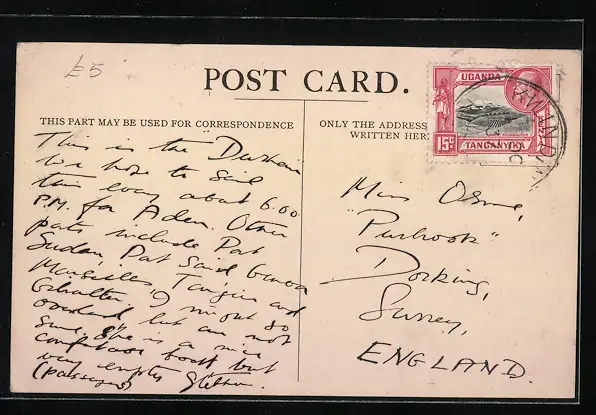 £5
POST CARD.
THIS PART MAY BE USED FOR CORRESPONDENCE
ONLY THE ADDRESS
WRITTEN HER
This is the "Durham
We hope to sail
this evening about 6.00
P.M. for Aden. Other
ports include Port
Sudan, Port Said Genoa
Marseilles, Tangier and
Gibraltar. I might go
overland but am not
sure. She is a nice
comfortable boat but
very empty
(passengers)
Miss Osme,
"Purbrook"
Dorking,
Surrey,
ENGLAND.
UGANDA
15c
TANGANYIKA